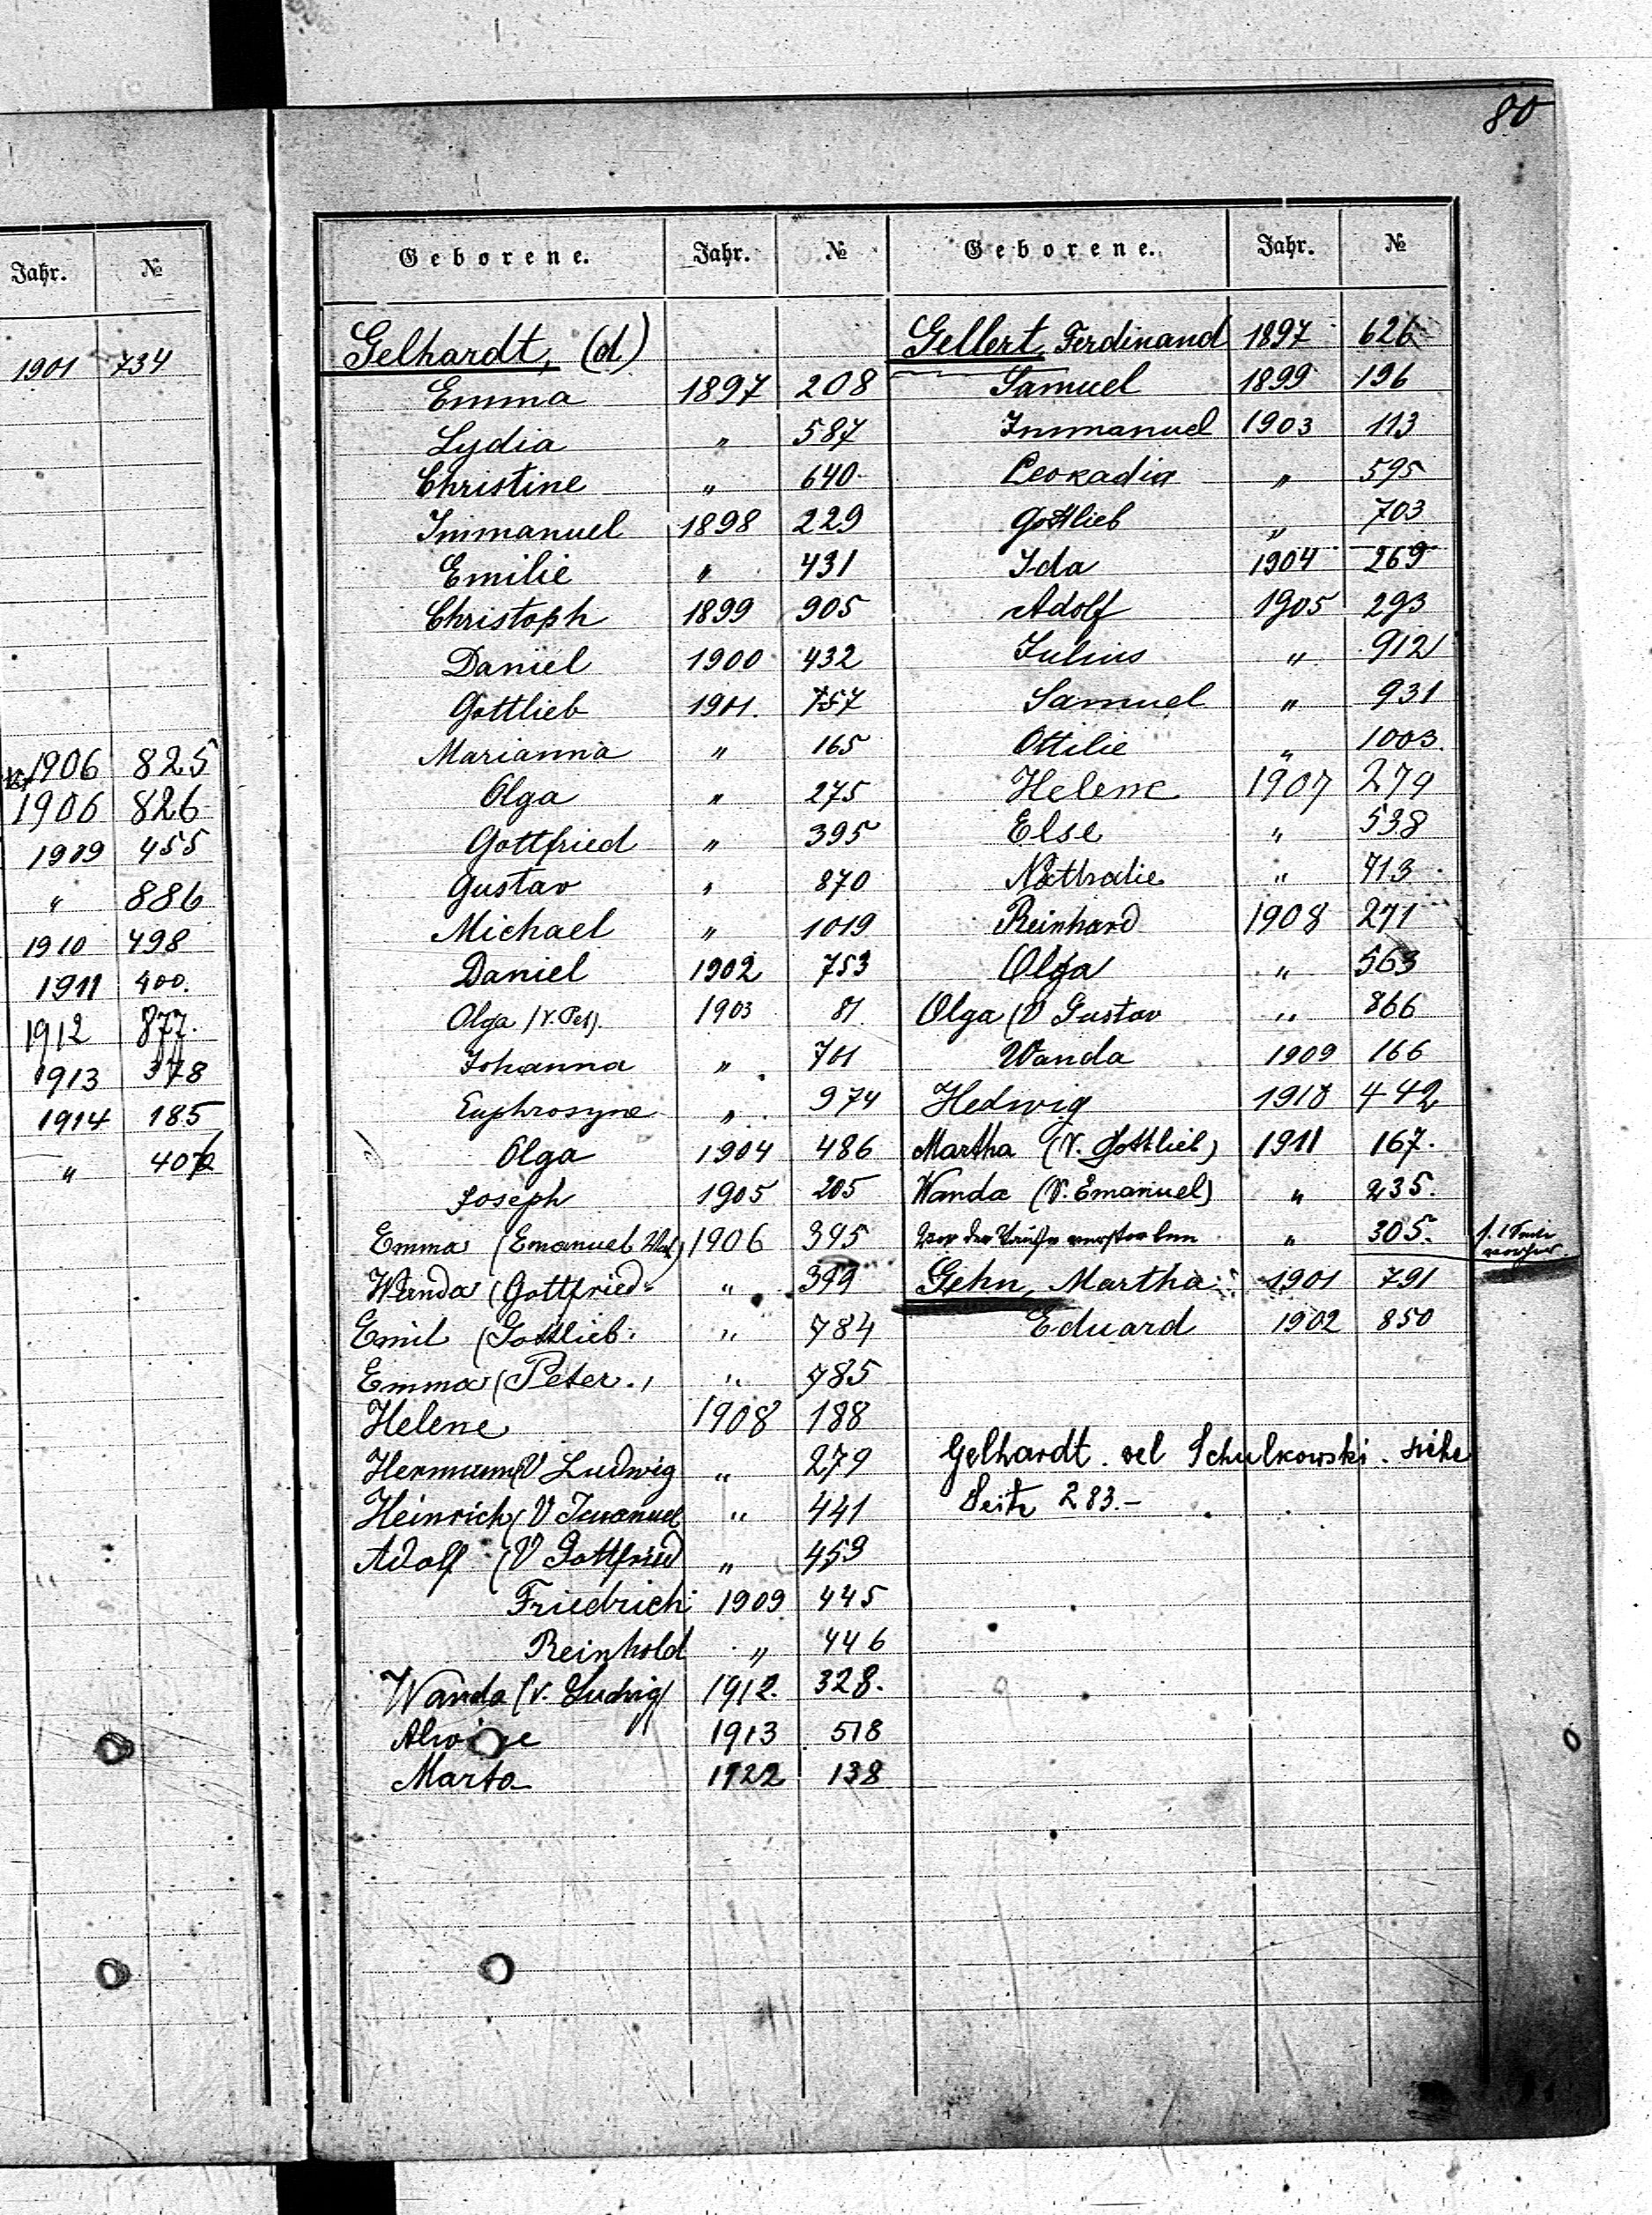 80
Jahr. №
1901 734
1906 825
1906 826
1909 455
" 886
1910 498
1911 400.
1912 877.
1913 378
1914 185
"
Geborene. Jahr. №
Gelhardt, (d)
Emma 1897 208
Lydia " 587
Christine " 640
Immanuel 1898 229
Emilie " 431
Christoph 1899 905
Daniel 1900 432
Gottlieb 1901. 757
Marianna " 165
Olga " 275
Gottfried " 395
Gustav " 870
Michael " 1019
Daniel 1902 753
Olga (V. Pet). 1903 81
Johanna " 701
Euphrosyne " 974
Olga 1904 486
Joseph 1905 205
Emma (Emanuel 1906 395
Wanda (Gottfried " 399
Emil (Gottlieb. " 784
Emma (Peter. " 785
Helene 1908 188
Hermann (V Ludwig " 279
Heinrich (V Imanuel " 441
Adolf (V Gottfried " 459
Friedrich 1909 445
Reinhold " 446
Wanda (V. Ludwig) 1912. 328.
1913 518
Marta 1922 138
Geborene. Jahr. №
Gellert, Ferdinand 1897 626
Samuel 1899 196
Immanuel 1903 113
Leokadia " 595
Gottlieb " 703
Ida 1904 269
Adolf 1905 293
Julius " 912
Samuel " 931
Ottilie " 1003.
Helene 1907 279
Else " 538
Nathalie " 713
Reinhard 1908 271
Olga " 563
Olga (V Gustav " 866
Wanda 1909 166
Hedwig 1910 442
Martha (V. Gottlieb) 1911 167.
Wanda (V. Emanuel) " 235.
Vor der Taufe verstorben " 305.
Gehn, Martha 1901 791
Eduard 1902 850
Gelhardt. vel Schulkowski. siehe
Seite 283.-